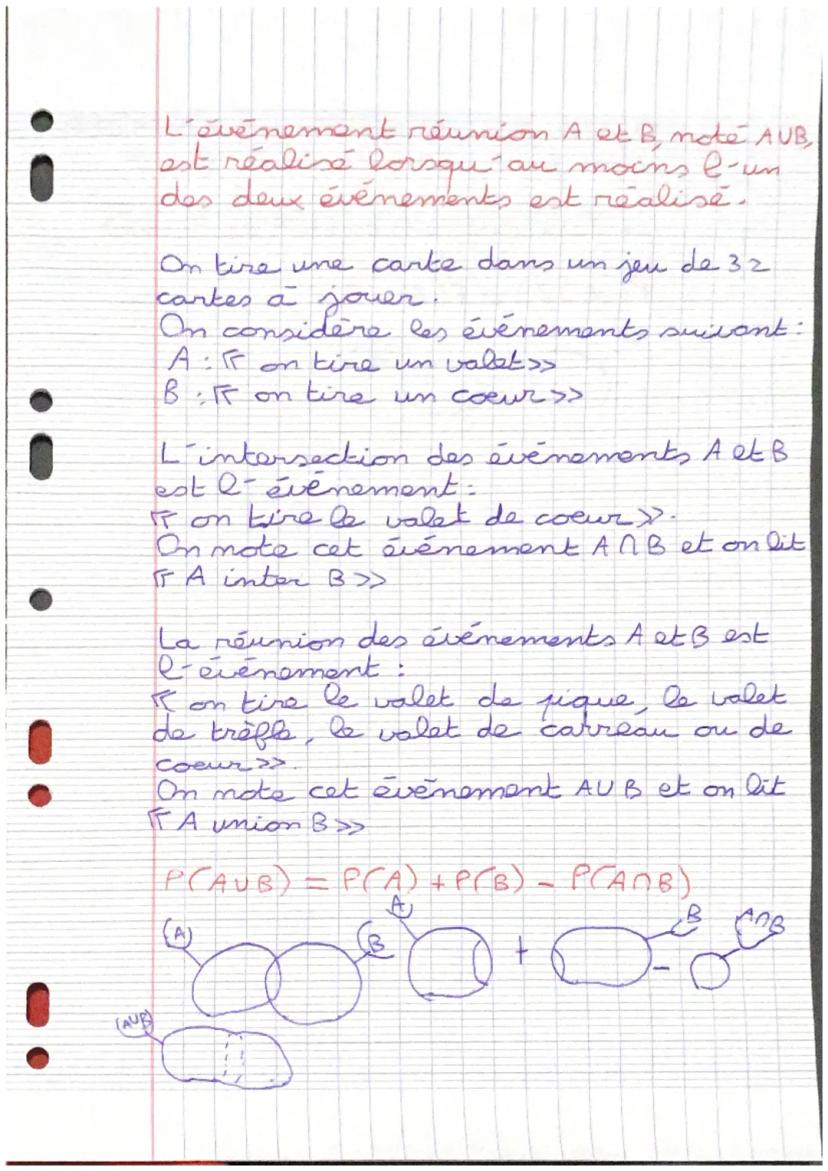 L'événement réunion A et B, noté A∪B,
est réalisé lorsqu'au moins l'un
des deux événements est réalisé.
On tire une carte dans un jeu de 32
cartes à jouer.
On considère les événements suivant :
A : « on tire un valet »
B : « on tire un coeur »
L'intersection des événements A et B
est l'événement :
« on tire le valet de coeur ».
On note cet événement A∩B et on lit
« A inter B »
La réunion des événements A et B est
l'événement :
« on tire le valet de pique, le valet
de trèfle, le valet de carreau ou de
coeur ».
On note cet événement A∪B et on lit
« A union B »
P(A∪B) = P(A) + P(B) - P(A∩B)
A B A + B - A∩B
A∪B